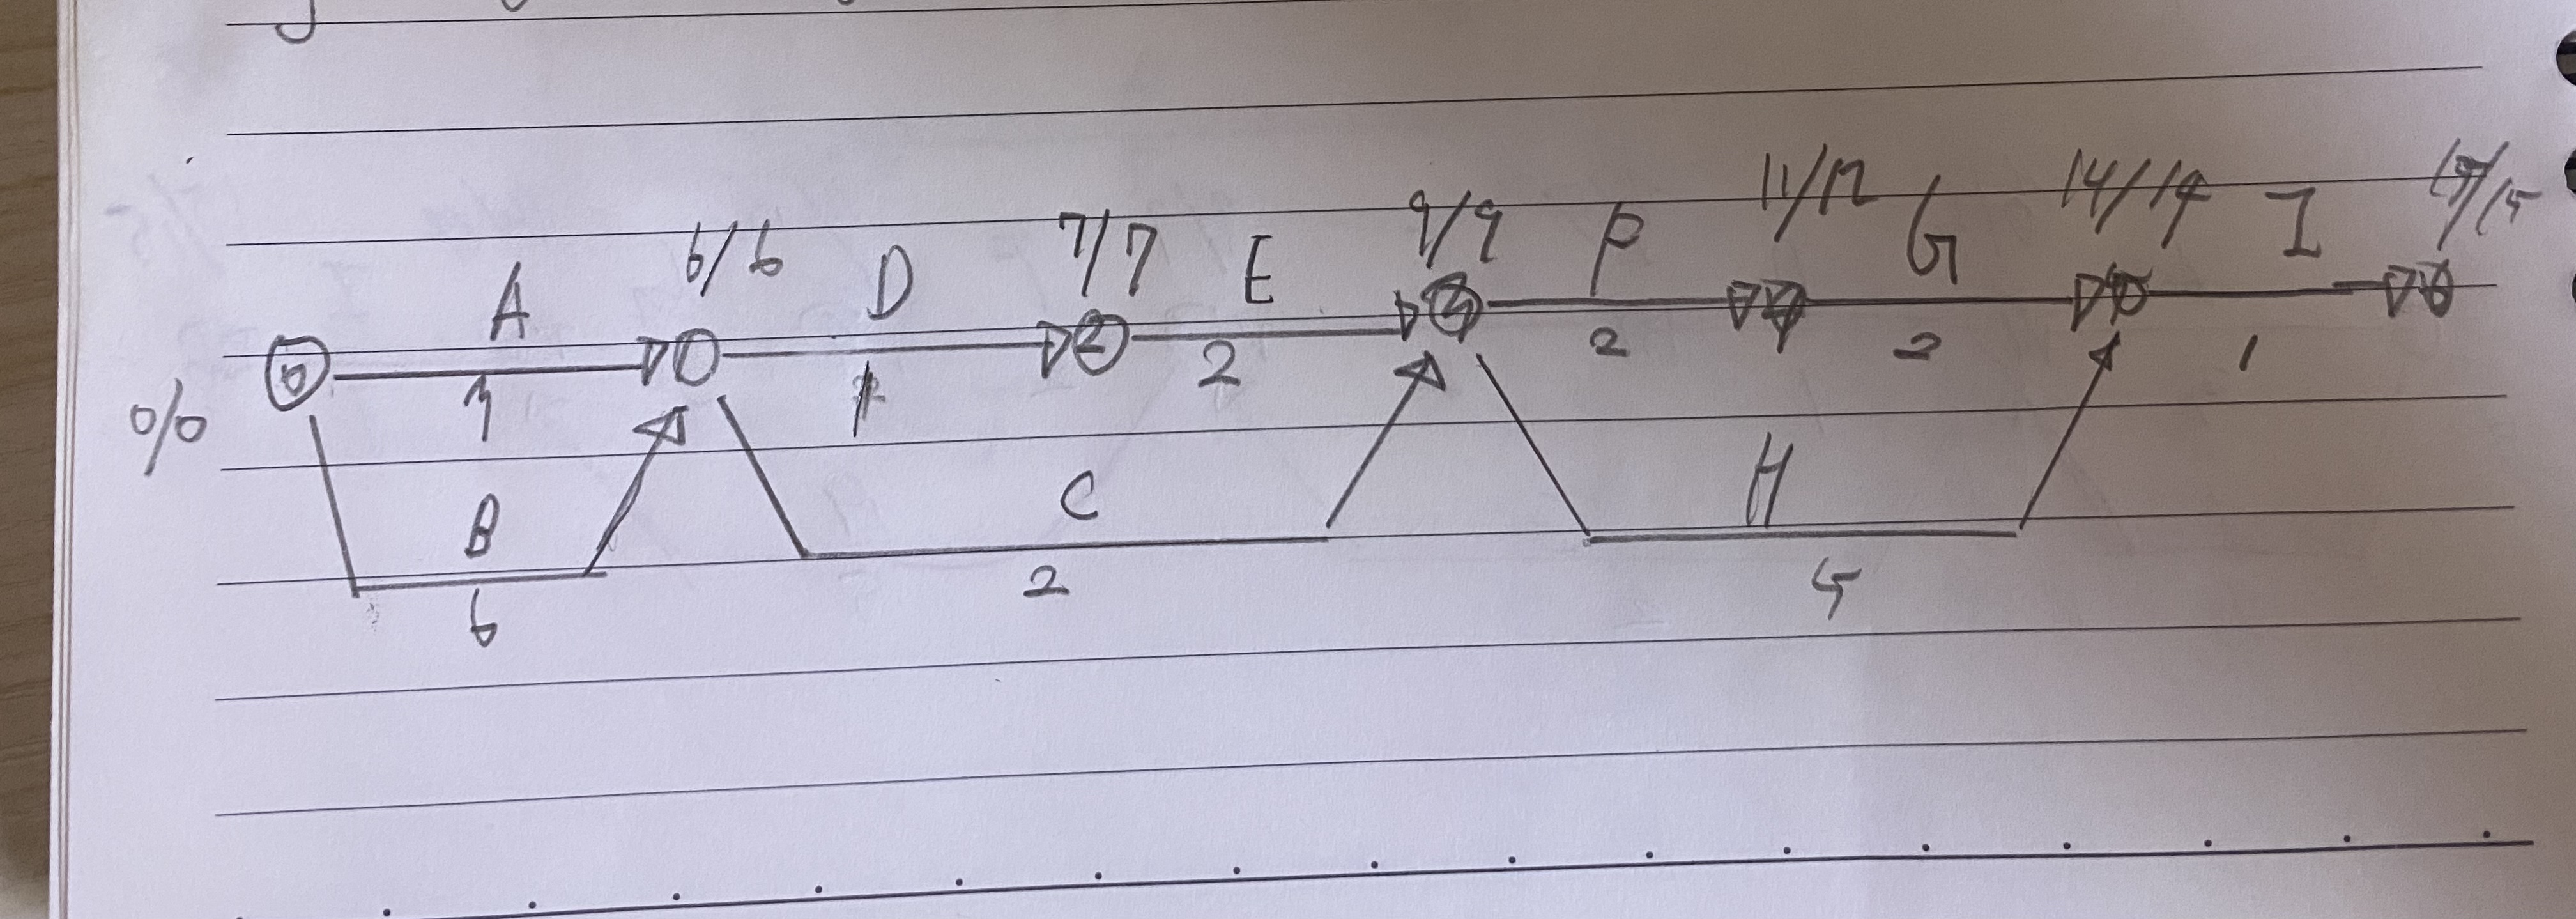 6/6 7/7 9/9 11/12 14/14 15/15
A D E F G I
0 2 3 4 5 6
0/0
1 2 2 2 1
B C H
6 2 5